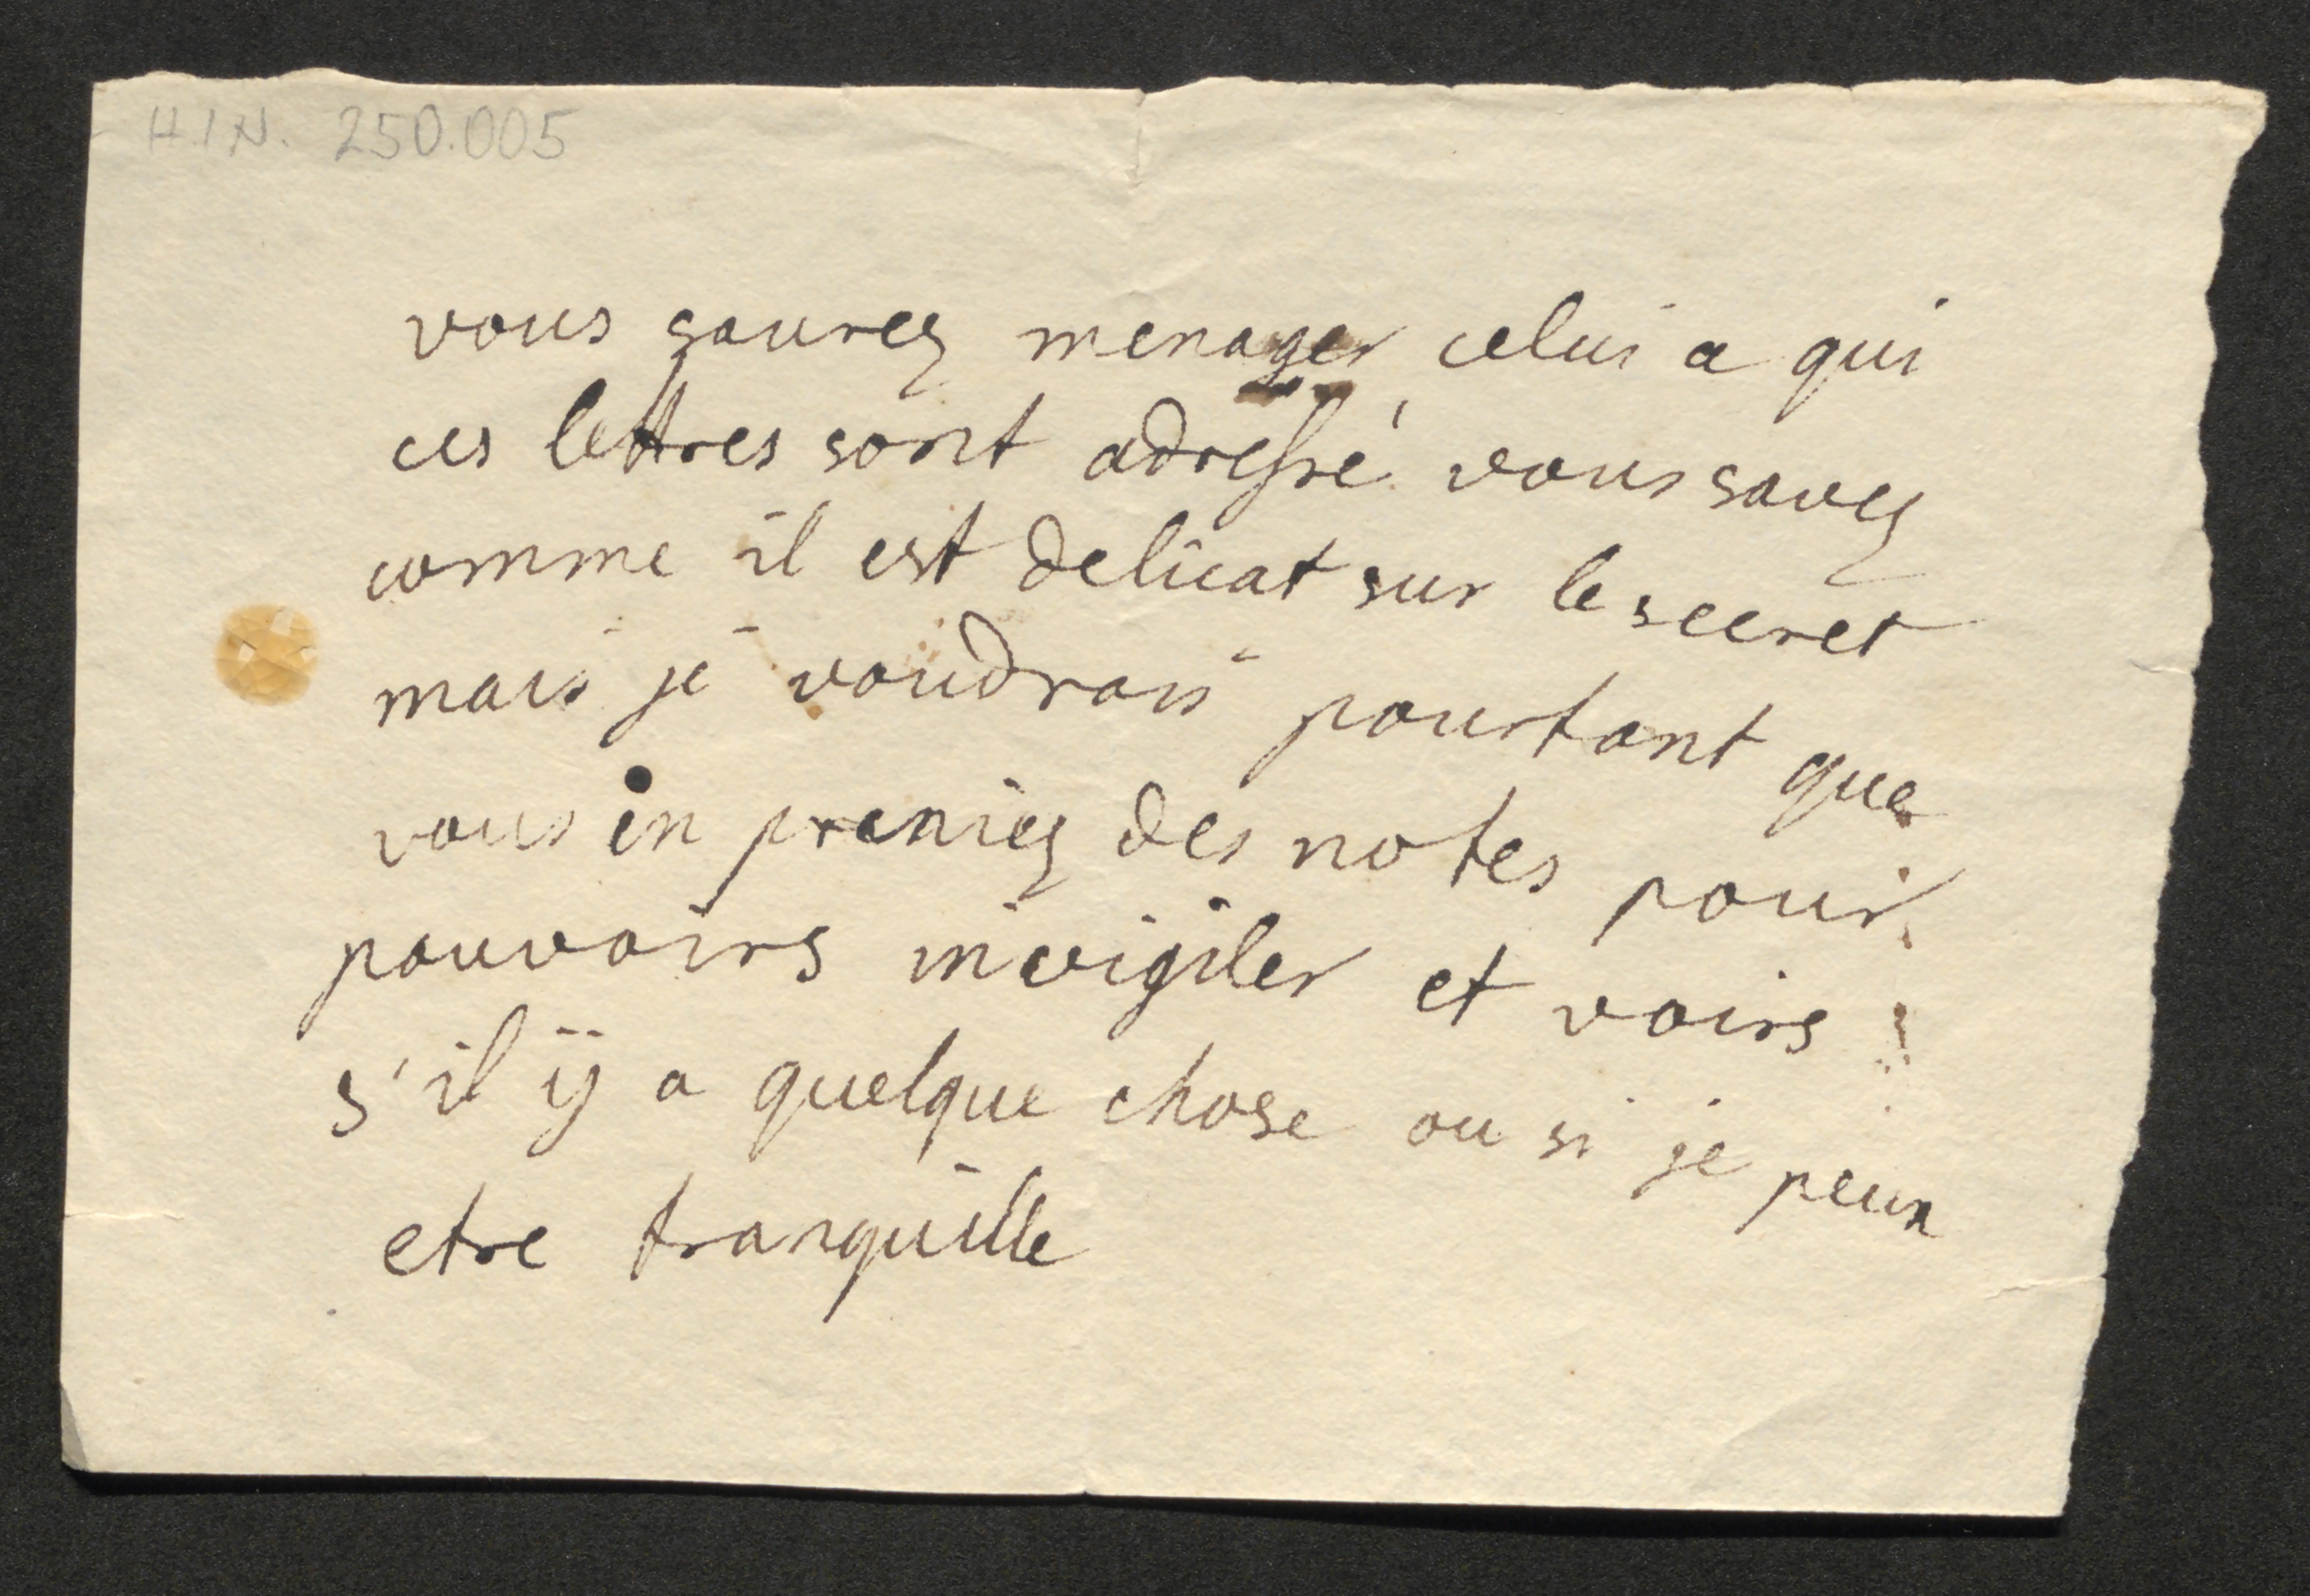 H.I.N. 250.005
vous saurez menager celui a qui
ces lettres sont adressé vous savez
comme il est delicat sur le secret
mais je voudrais pourtant que
vous en preniez des notes pour
pouvoirs invigiler et voirs
s'il ÿ a quelque chose ou si je peux
etre tranquille